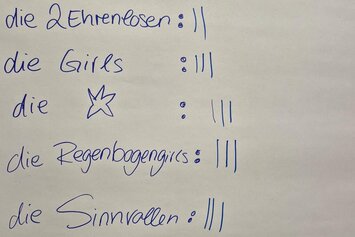 die 2 Ehrenlosen: ||
die Girls : |||
die ☆ : |||
die Regenbogengirls: |||
die Sinnvollen: |||